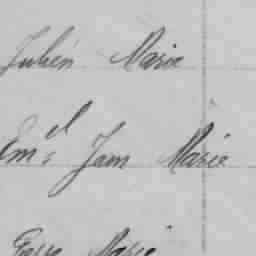 Julien Marie
Em.el Jean Marie
Marie